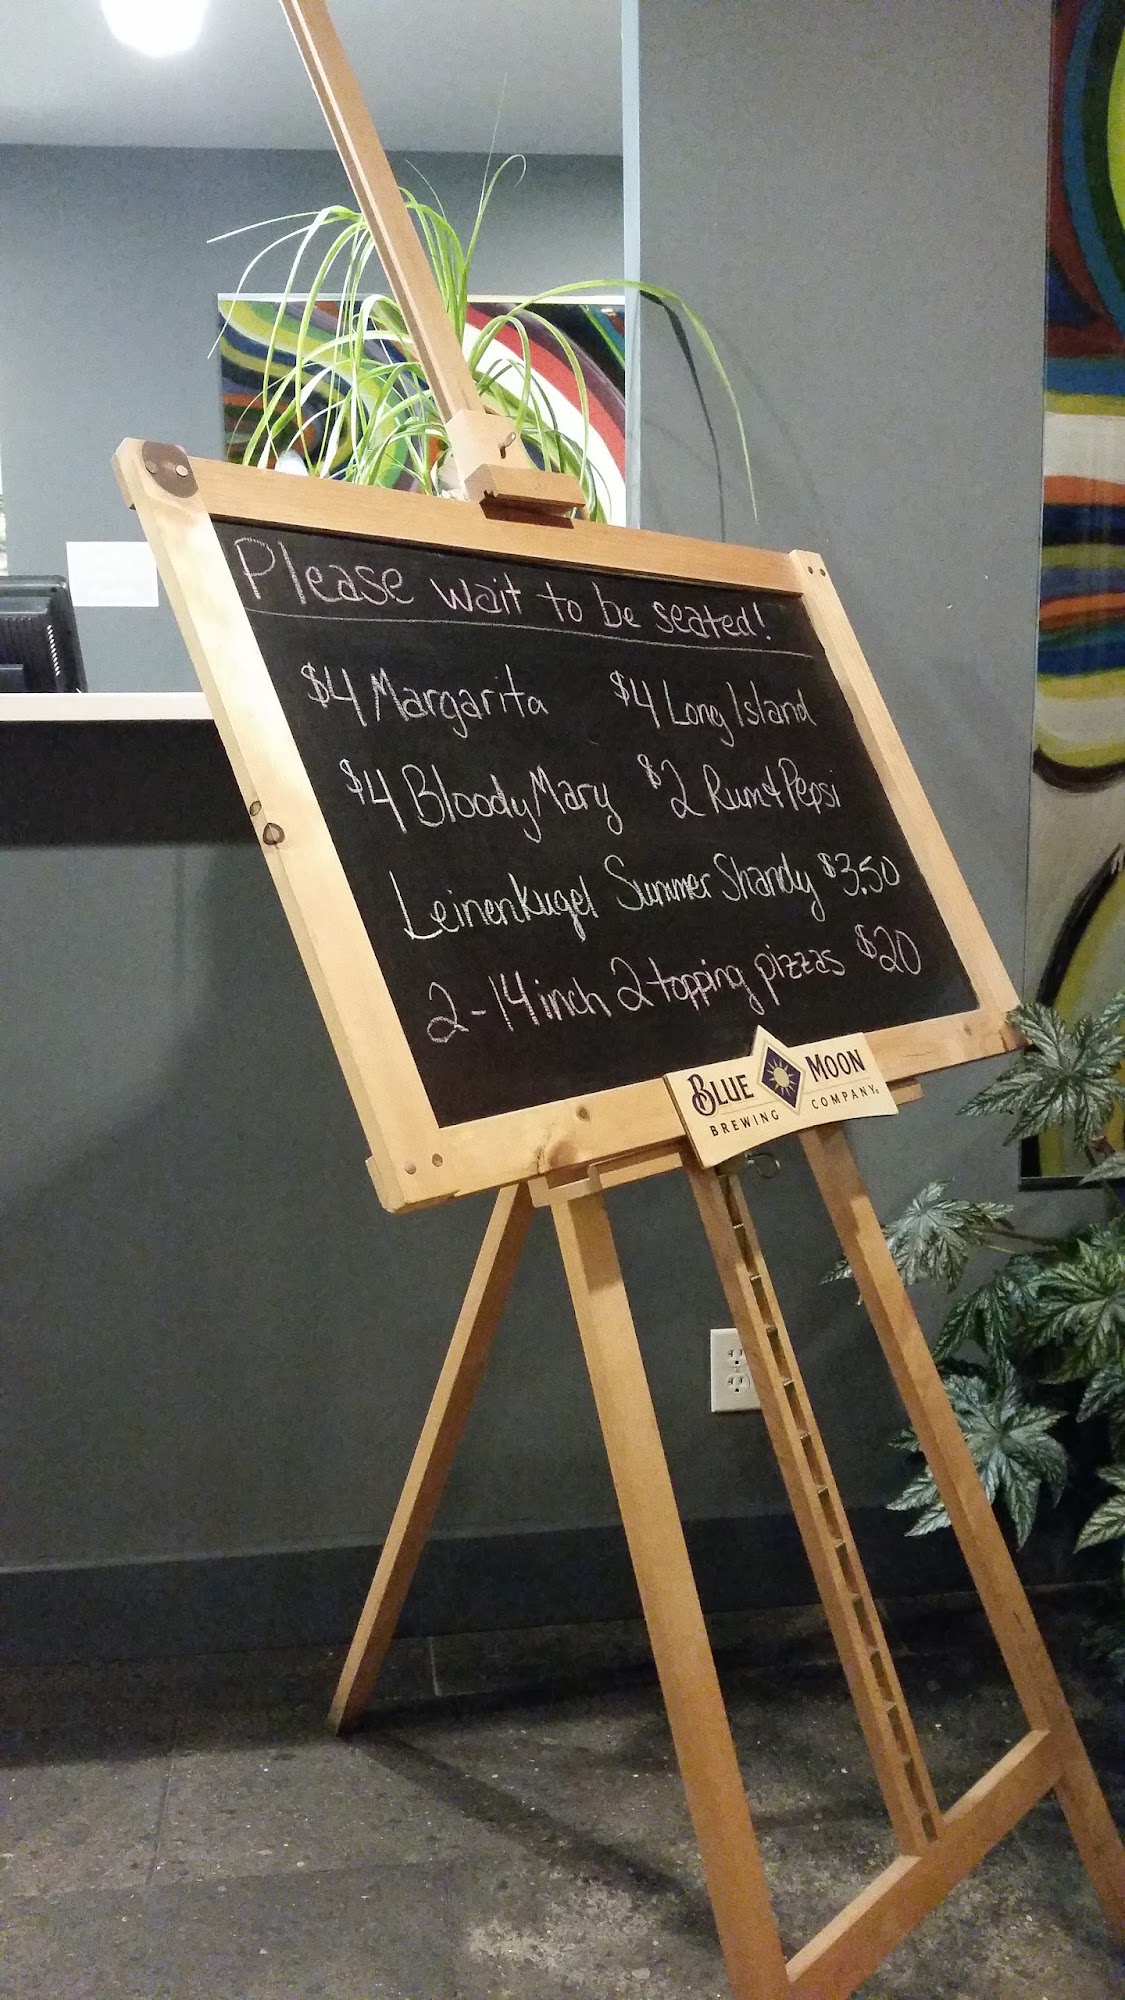 Please wait to be seated!
$4 Margarita $4 Long Island
$4 Bloody Mary $2 Rum & Pepsi
Leinenkugel Summer Shandy $3.50
2-14 inch 2 topping pizzas $20
BLUE MOON
BREWING COMPANY